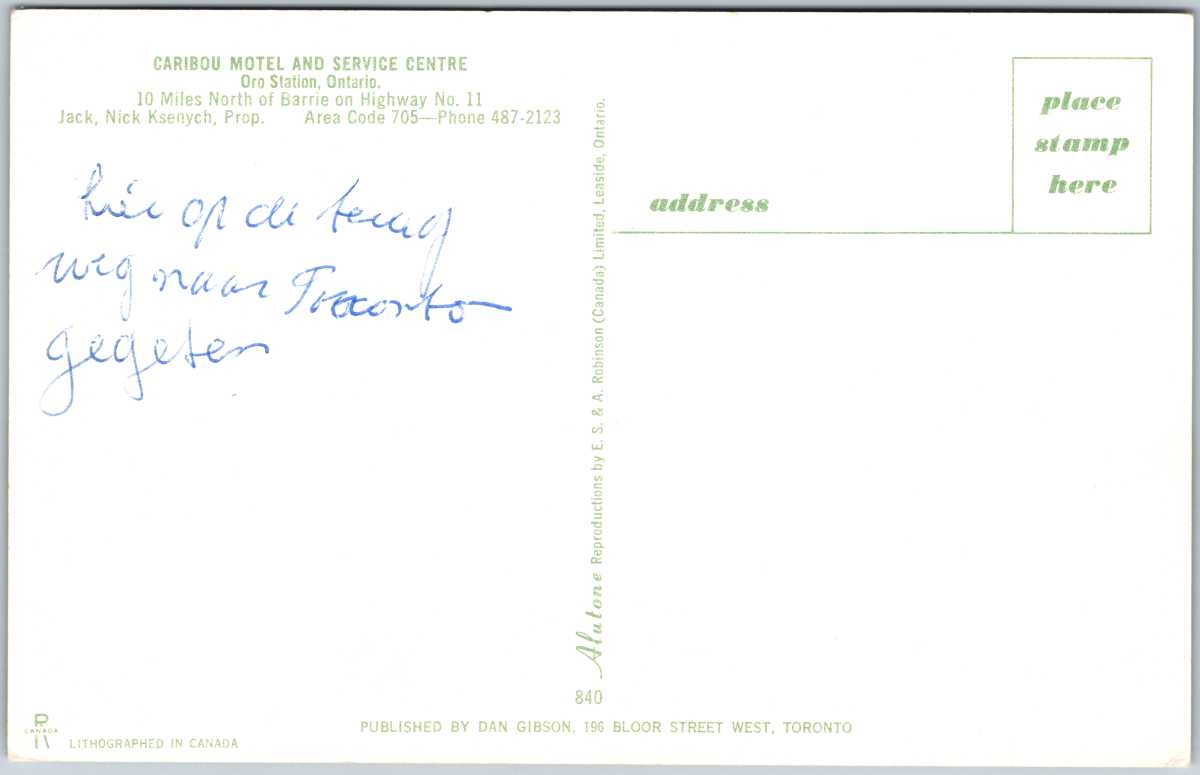 CARIBOU MOTEL AND SERVICE CENTRE
Oro Station, Ontario.
10 Miles North of Barrie on Highway No. 11
Jack, Nick Ksenych, Prop. Area Code 705—Phone 487-2123
hier op de terug
weg naar Toronto
gegeten
Alutone Reproductions by E. S. & A. Robinson (Canada) Limited, Leaside, Ontario.
840
place
stamp
here
address
R
CANADA
LITHOGRAPHED IN CANADA
PUBLISHED BY DAN GIBSON, 196 BLOOR STREET WEST, TORONTO